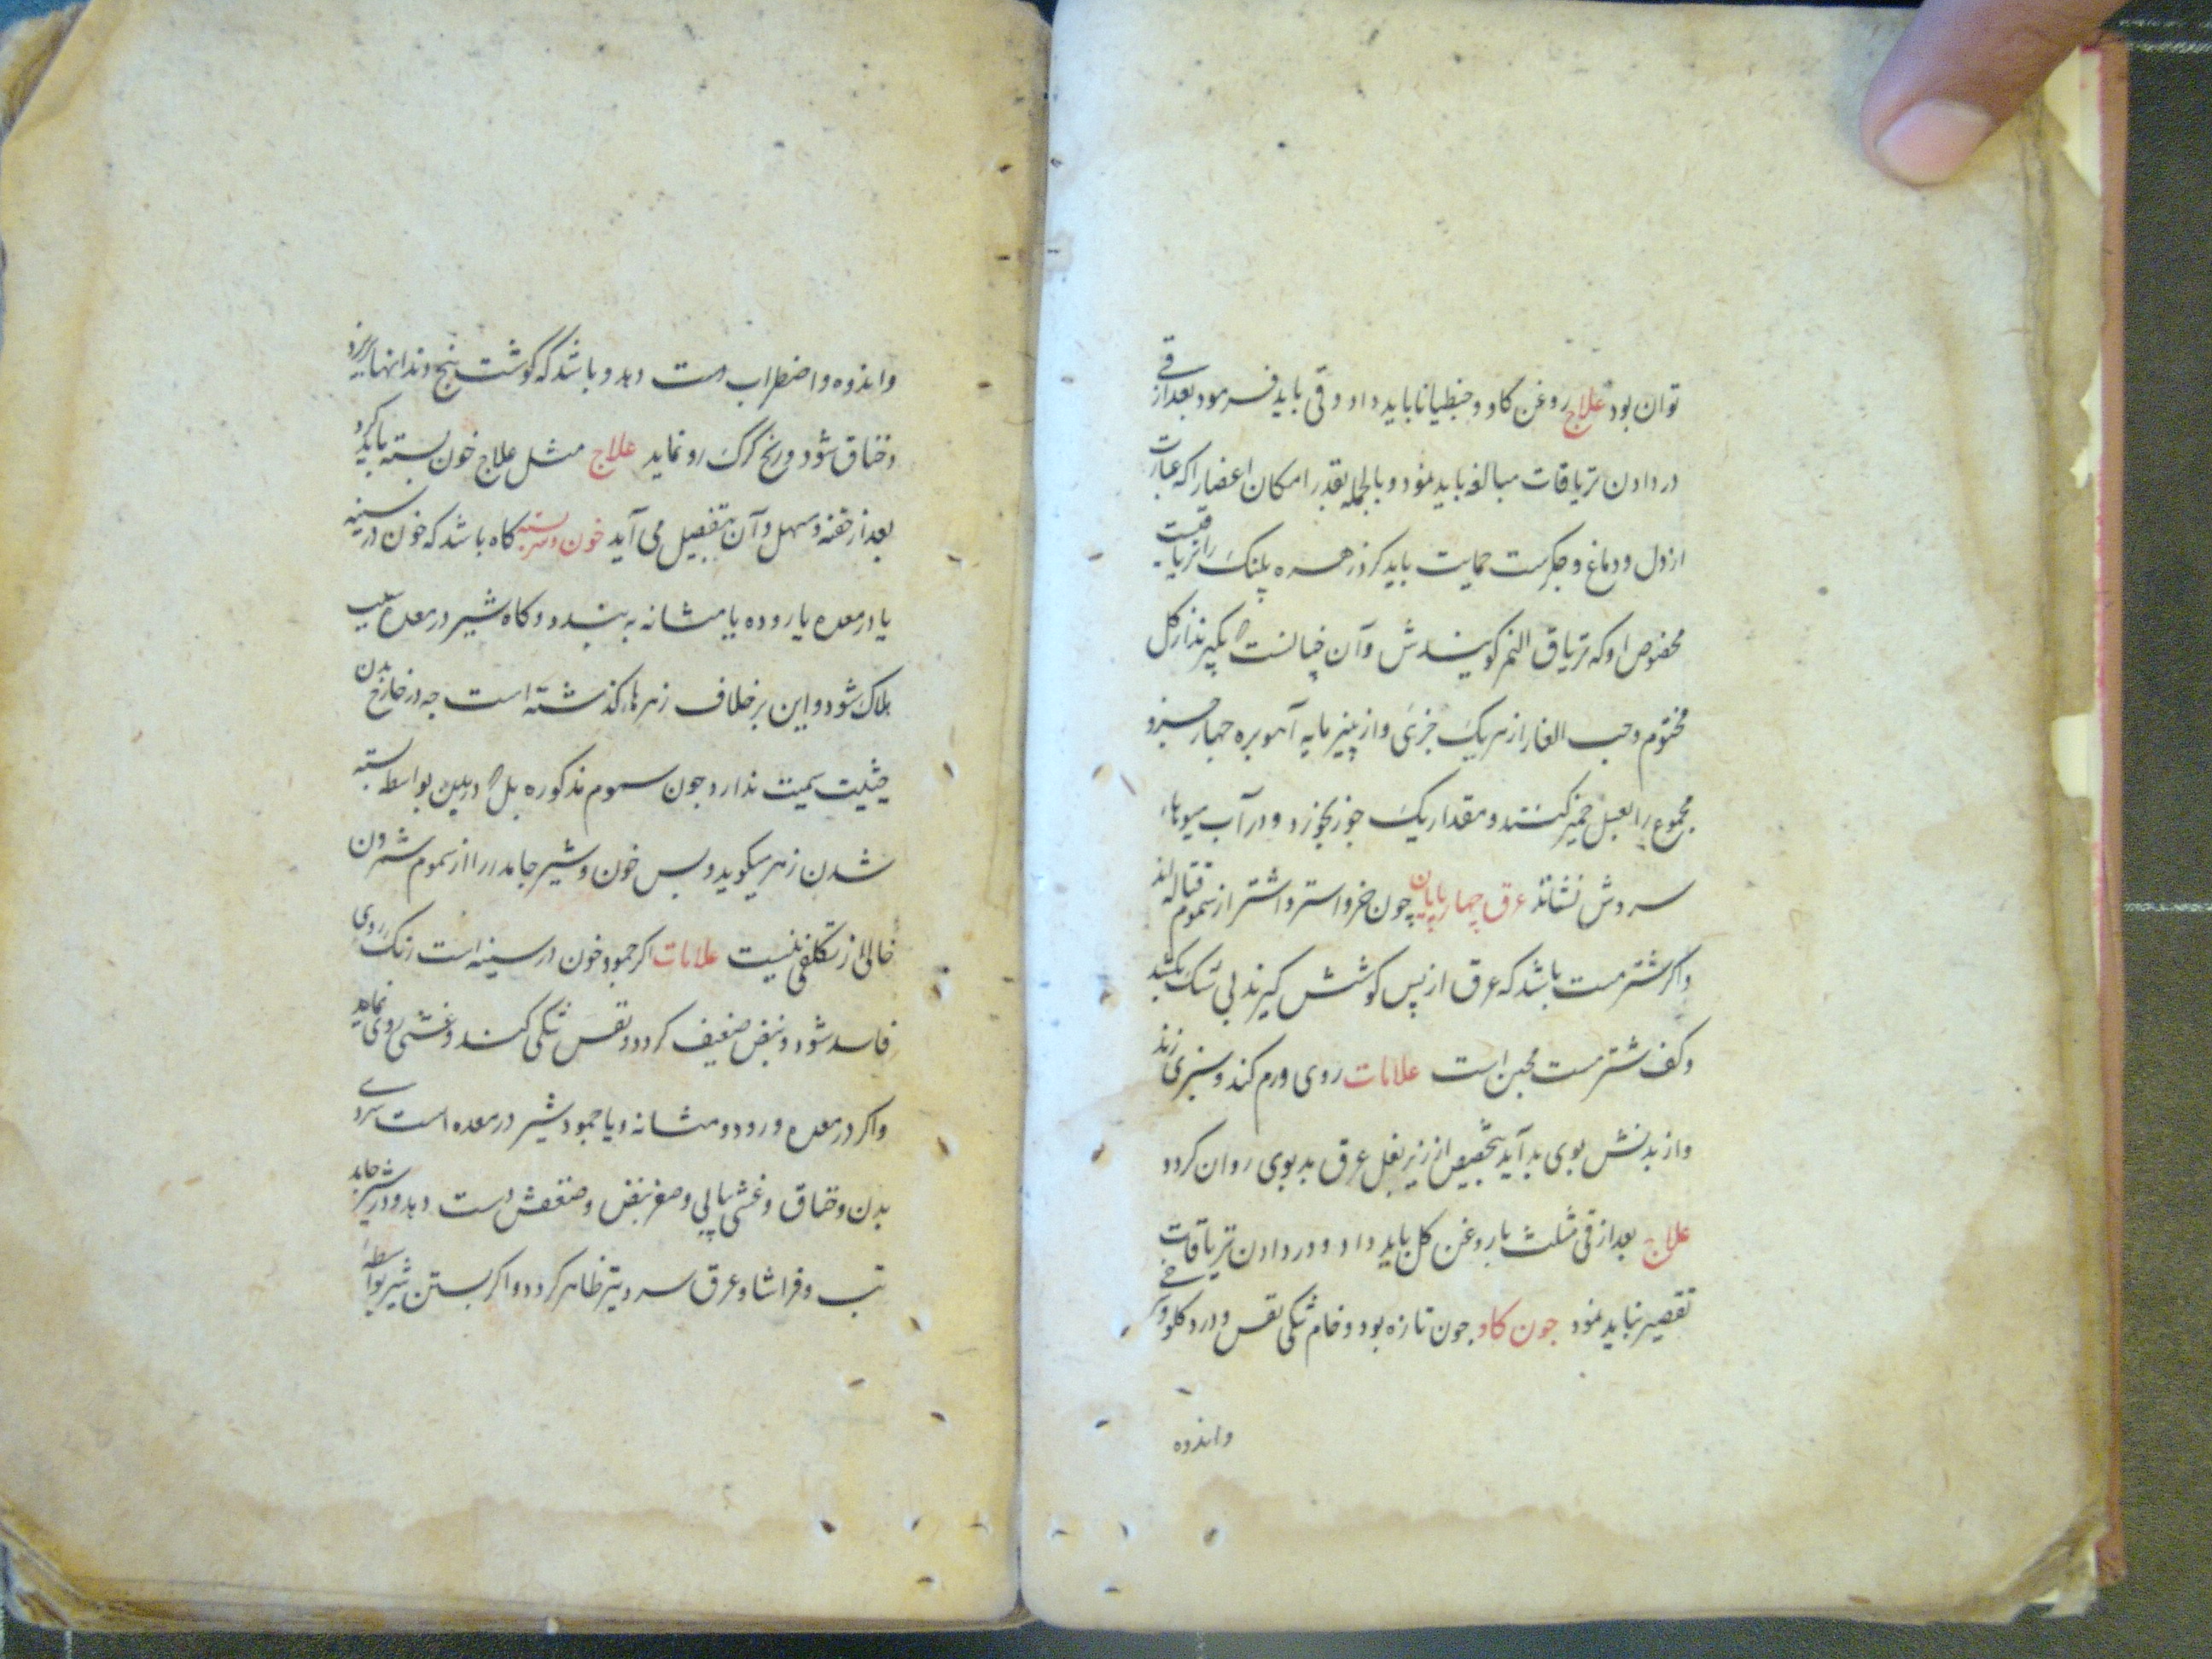 توان بود علاج روغن کاو و جنطیانا باید داد و قی باید فرمود بعد از قی
در دادن تریاقات مبالغه باید نمود و بالجمله بقدر امکان اعضا را که عبارت
از دل و دماغ و جکرست حمایت باید کرد زهره پلنک را تریاقیست
مخصوص او که تریاق النمر کویندش و آن چنانست که بکیرند از کل
مختوم و حب الغار از هر یک جزئی و از پنیر مایه آهو بره چهار جزو
مجموع را بعسل خمیر کنند و مقدار یک جوز بخورد و در آب میوهاء
سردش نشانند عرق چهار پایان چون خر و استر و اشتر از سموم قتاله اند
و اکر شتر مست باشد که عرق از پس کوشش کیرند بی شک بکشد
و کف شتر مست مجنن است علامات روی ورم کند و سبزی زند
و از بدنش بوی بد آید بتخصیص از زیر بغل عرق بد بوی روان کردد
علاج بعد از قی مثلث با روغن کل باید داد و در دادن تریاقات
تقصیر نباید نمود خون کاو چون تازه بود و خام تنکی نفس و درد کلو
واندوه
واندوه و اضطراب دست دهد و باشد که کوشت بنج دندانها بریزد
و خناق شود و رنج کرک رو نماید علاج مثل علاج خون بسته باید کرد
بعد از حقنه و مسهل و آن بتفصیل می آید خون و شیر بسته کاه باشد که خون در سینه
یا در معده یا روده یا مثانه به بندد و کاه شیر در معده
هلاک شود و این بر خلاف زهرهاء کذشته است چه در خارج بدن
حیثیت سمیت ندارد چون سموم مذکوره بل که در بدن بواسطه بسته
شدن زهر میکوید و بس خون و شیر جامد را از سموم شمردن
خالی از تکلفی نیست علامات اکر جمود خون در سینه است رنک روی
فاسد شود و نبض ضعیف کردد و نفس تنکی کند و غشی روی نماید
و اکر در معده و روده و مثانه و یا جمود شیر در معده است سردی
بدن و خناق و غشی پیاپی و صغر نبض و ضعفش دست دهد و در شیر جامد
تب و فراشا و عرق سرد نیز ظاهر کردد و اکر بستن شیر بواسطه